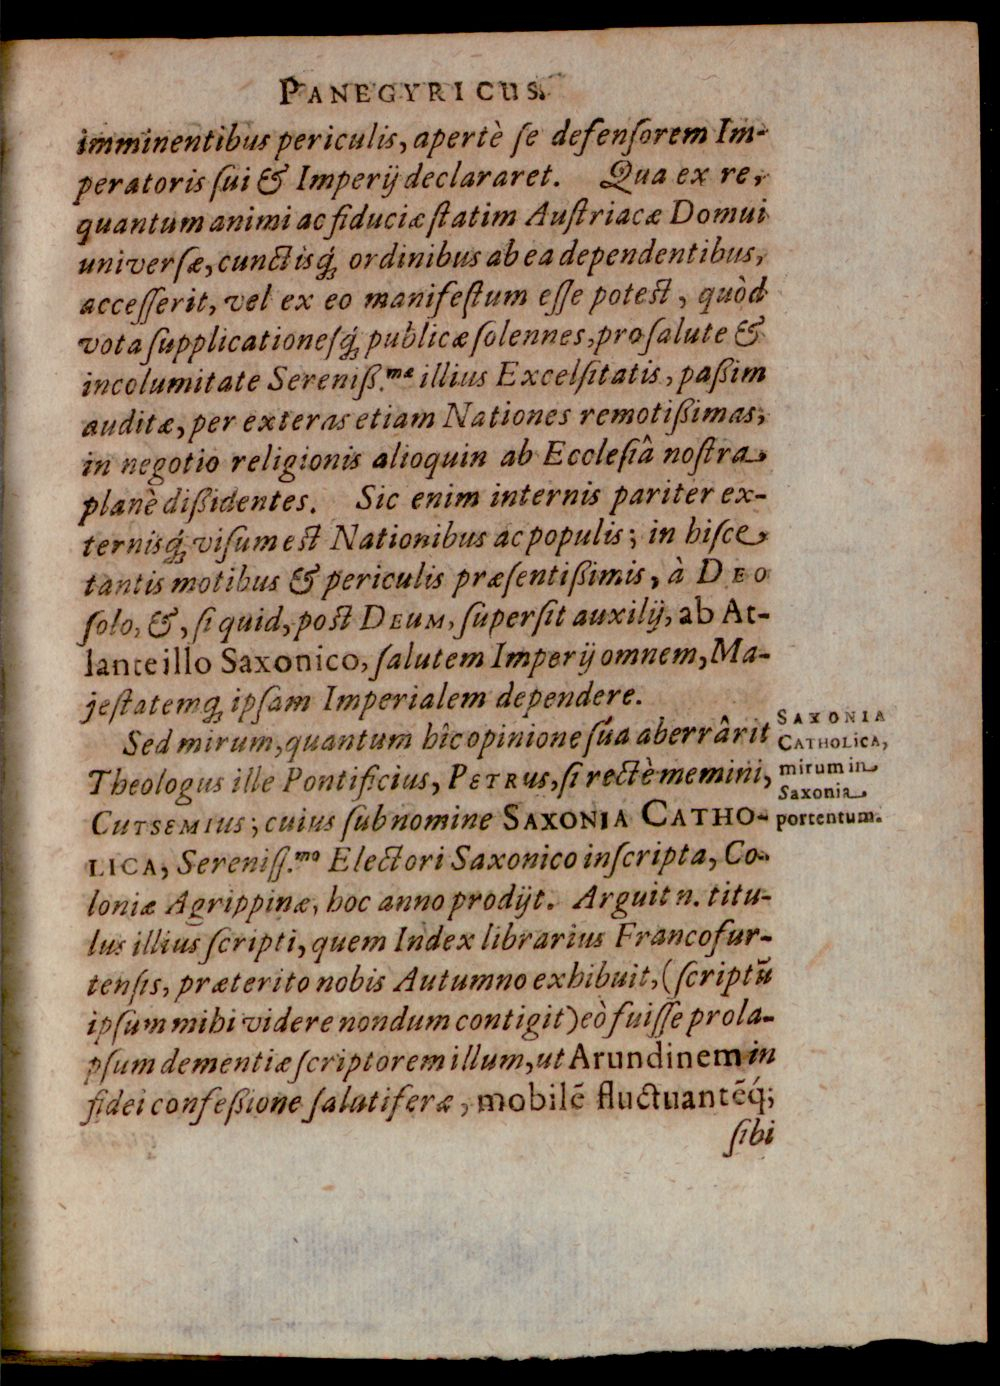 PANEGYRICUS.
imminentibus periculis, apertè ſe defenſorem Im-
peratoris ſui & Imperij declararet. Qua ex re,
quantum animi ac fiduciæ ſtatim Auſtriacæ Domui
univerſæ, cunctisq́; ordinibus ab ea dependentibus,
acceſſerit, vel ex eo manifeſtum eſſe potest, quòd
vota ſupplicationeſq́; publicæ ſolennes, pro ſalute &
incolumitate Sereniß.mæ illius Excelſitatis, paßim
auditæ, per exteras etiam Nationes remotißimas,
in negotio religionis alioquin ab Eccleſiâ noſtra
planè dißidentes. Sic enim internis pariter ex-
ternisq́; viſum est Nationibus ac populis; in hiſce
tantis motibus & periculis præſentißimis, à DEO
ſolo, &, ſi quid, post DEUM, ſuperſit auxilij, ab At-
lante illo Saxonico, ſalutem Imperij omnem, Ma-
jeſtatemq́; ipſam Imperialem dependere.
Sed mirum, quantum hîc opinione ſúa aberrârit
Theologus ille Pontificius, PETRUS, ſi rectè memini,
CUTSEMIUS; cuius ſub nomine SAXONIA CATHO-
LICA, Sereniſſ.mo Electori Saxonico inſcripta, Co-
loniæ Agrippinæ, hoc anno prodijt. Arguit n. titu-
lus illius ſcripti, quem Index librarius Francofur-
tenſis, præterito nobis Autumno exhibuit, (ſcriptũ
ipſum mihi videre nondum contigit) eò fuiſſe prola-
pſum dementiæ ſcriptorem illum, ut Arundinem in
fidei confeßione ſalutiferæ, mobilẽ fluctuantẽq́;
ſibi
SAXONIA
CATHOLICA,
mirum in
Saxonia
portentum.